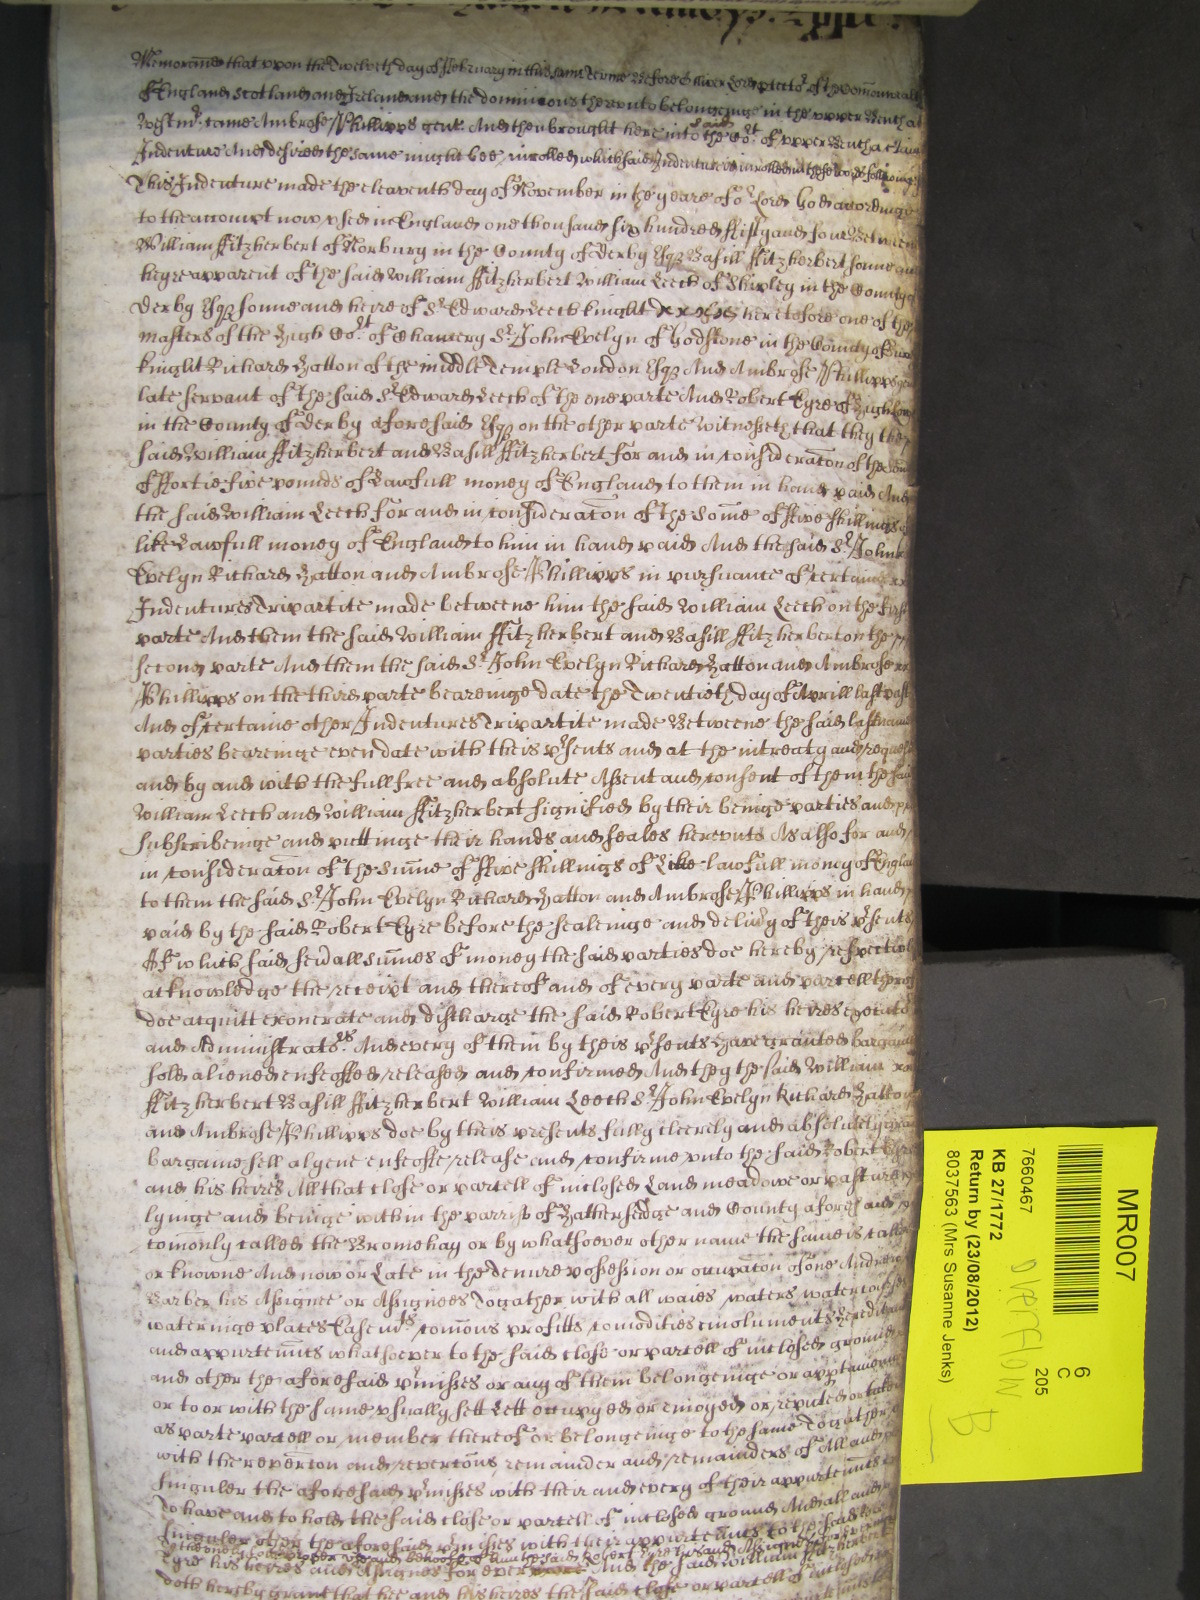 Memorand that upon the Twelveth day of Februarye in this same Terme Before Oliver Lord Protector of the Comonwealth
of England Scotland and Ireland and the dominions thereunto belonginge in the upper Bench at
Westmr came Ambrose Phillipps gent And then brought here into the said Cort of upper Bench a certaine
Indenture And desired the same might bee inrolled which said Indenture is inrolled in these words followinge
This Indenture made the eleaventh day of November in the yeare of or Lord God accordinge
to the accompt now used in England one thousand six hundred fiftye and foure Betweene
William ffitzherbert of Norbury in the County of Derby Esqr Basill ffitzherbert sonne and
heyre apparent of the said William ffitzherbert William Leech of Shipley in the County of
Derby Esqr sonne and heire of Sr Edward Leech knight heretofore one of the
masters of the High Cort of Chancery Sr John Evelyn of Godstone in the County of Surrey
knight Richard Hatton of the middle Temple London Esqr And Ambrose Phillipps gent
late servant of the said Sr Edward Leech of the one parte And Robert Eyre of High
in the County of Derby aforesaid Esqr on the other parte Witnesseth that they the
said William ffitzherbert and Basill ffitzherbert for and in consideracon of the
of ffortie five pounds of Lawfull money of England to them in hand paid And
the said William Leech for and in consideracon of the Some of ffive shillings of
like Lawfull money of England to him in hand paid And the said Sr John
Evelyn Richard Hatton and Ambrose Phillipps in pursuance of certaine
Indentures Tripartite made betweene him the said William Leech on the first
parte And them the said William ffitzherbert and Basill ffitzherbert on the
second parte And them the said Sr John Evelyn Richard Hatton and Ambrose
Phillipps on the third parte beareinge date the Twentieth day of Aprill last past
And of certaine other Indentures Tripartite made Betweene the said last named
parties beareinge even date with theis prsents and at the intreaty and request
and by and with the full free and absolute Assent and consent of them the said
William Leech and William ffitzherbert signified by their beinge parties and
subscribeinge and puttinge their hands and seales hereunto As also for and
in consideracon of the sume of ffive shillings of Like lawfull money of England
to them the said Sr John Evelyn Richard Hatton and Ambrose Phillipps in hand
paid by the said Robert Eyre before the sealeinge and delivy of theis prsents
Of which said sevall sumes of money the said parties doe hereby respectively
acknowledge the receipt and thereof and of every parte and parcell thereof
doe acquitt exonerate and discharge the said Robert Eyre his heires executors
and Administrators And every of them by theis prsents Have graunted bargained
sold aliened enfeoffed released and confirmed And they the said William
ffitzherbert Basill ffitzherbert William Leech Sr John Evelyn Richard Hatton
and Ambrose Phillipps doe by theis presents fully cleerely and absolutely graunt
bargaine sell alyene enfeoffe release and confirme unto the said Robert Eyre
and his heires All that close or parcell of inclosed Land meadowe or pasture
lyinge and beinge within the parrish of Hathersedge and County aforesaid
comonly called the Bromehay or by whatsoever other name the same is called
or knowne And now or Late in the Tenure possession or occupacon of one Andrew
Barber his Assignee or Assignees Togather with all waies waters watercourses
wateringe places Easemts comons profitts comodities emoluments Hereditamts
and appurtennts whatsoever to the said close or parcell of inclosed ground
and other the aforesaid prmisses or any of them belonginge or appertaineinge
or to or with the same usually sett Lett occupyed or enioyed or reputed or taken
as parte parcell or member thereof or belongeinge to the same Togather
with the revercon and revercons remainder and remainders of All and
singuler the aforesaid prmisses with their and every of their appurtennts
To have and to hold the said close or parcell of inclosed ground And all and
singuler other the aforesaid prmisses with their appurtennts to the said
to the onely proper use and behoofe of him the said Robert Eyre his heires and Assignes for ever
Eyre his heires and Assignes for ever And the said William ffitzherbert
doth hereby graunt that hee and his heires the said close or parcell of inclosed
MR007
6
C
205
7660467
KB 27/1772
Return by (23/08/2012)
8037563 (Mrs Susanne Jenks)
overflow
B